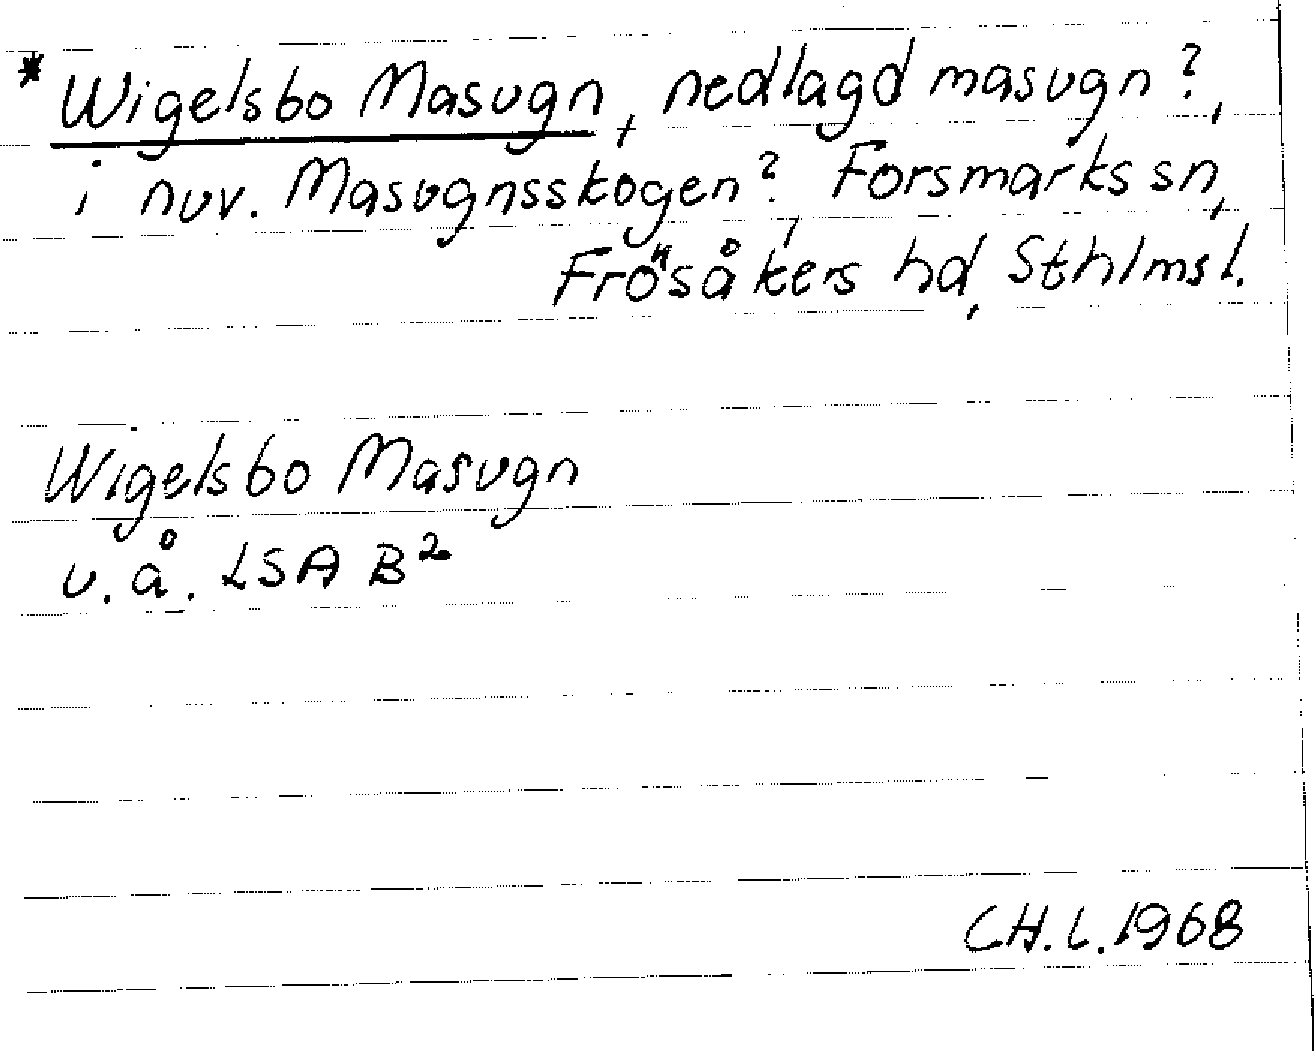 * Wigelsbo Masugn, nedlagd masugn?,
i nuv. Masugnsskogen?, Forsmarks sn,
Frösåkers hd, Sthlms l.
Wigelsbo Masugn
u. å. LSA B²
CH.L. 1968